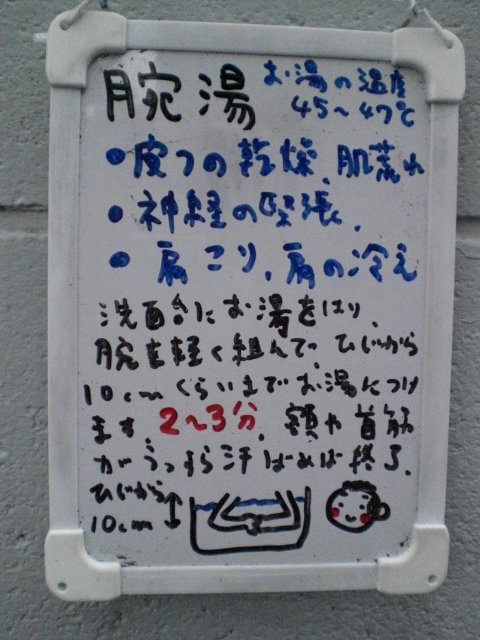 腕湯
お湯の温度
45~47℃
・皮フの乾燥、肌荒れ
・神経の緊張、
・肩こり、肩の冷え
洗面台にお湯をはり、
腕を軽く組んで、ひじから
10cmくらいまでお湯につけ
ます。2~3分、額や首筋
がうっすら汗ばめば終了。
ひじから
10cm